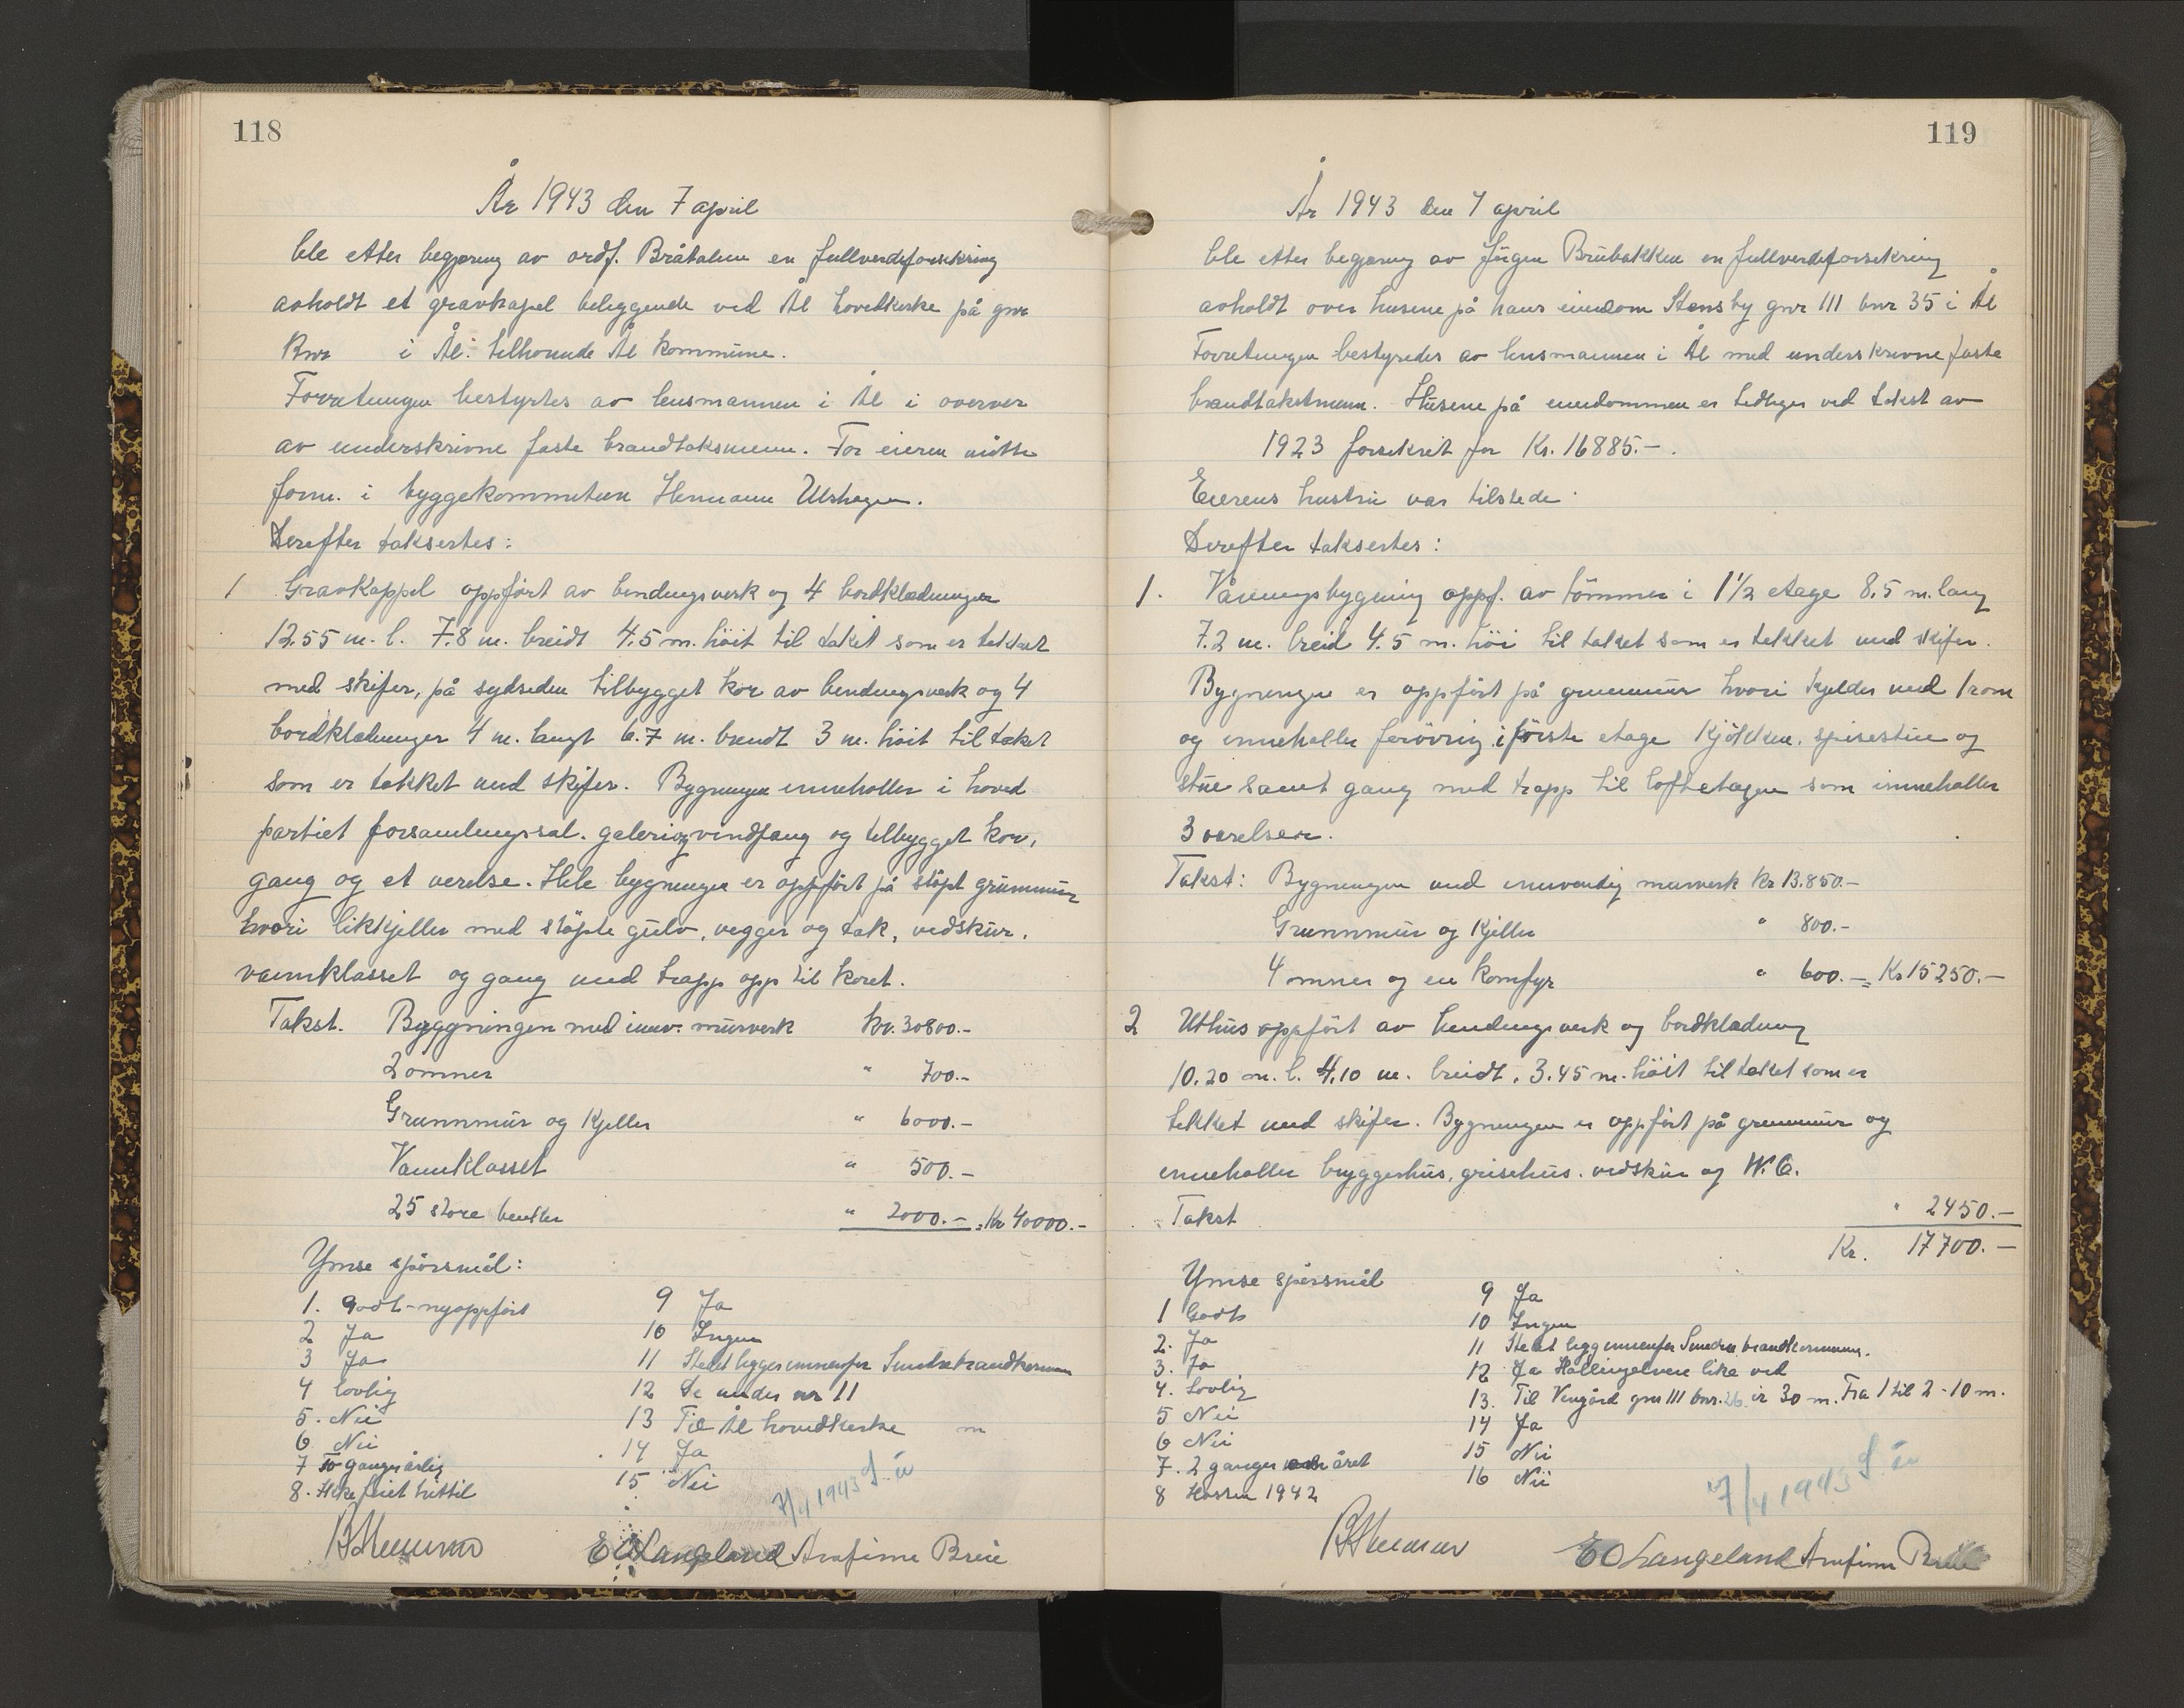 118
År 1943 den 7 april
ble etter begjæring av ordf. Bråtalien en fullverdiforsikring
avholdt et gravkapel beliggende ved Ål hovedkirke på gnr
Bnr i Ål. tilhørende Ål kommune.
Forretningen bestyrtes av lensmannen i Ål i overvær
av underskrivne faste brandtaksmenn. For eieren møtte
form. i byggekommiteen Hermann Ulshagen.
Derefter taksertes:
1 Gravkappel oppført av bindingsverk og 4 bordklædninger
12.55 m. l. 7.8 m. breidt 4.5 m. höit til taket som er tekket
med skifer, på sydsiden tilbygget kor av bindingsverk og 4
bordklædninger 4 m. langt 6.7 m. breidt 3 m. höit til taket
som er tekket med skifer. Bygningen inneholler i hoved
partiet forsamlingssal. galeri og vindfang og tilbygget kor,
gang og et værelse. Hele bygningen er oppført på støpt grunnmur
hvori likkjeller med støpte gulv, vegger og tak, vedskur,
vannklosset og gang med trapp opp til koret.
Takst. Byggningen med innv. murverk kr. 30800.-
2 omner " 700.-
Grunnmur og Kjeller " 6000.-
Vannklosset " 500.-
25 store benker " 2000.- = Kr 40000.-
Ymse spörsmål:
1. Godt-nyoppført
2 Ja
3 Ja
4 lovlig
5. Nei
6 Nei
7 To ganger årlig
8. Ikke feiet hittil
9 Ja
10 Ingen
11 Stedet ligger innenfor Sundre brandkommun
12 Se under nr 11
13 Til Ål hovedkirke m
14 Ja
15 Nei
7/4 1943
E O Langeland Arnfinn Breie
119
År 1943 den 7 april
ble etter begjæring av Jörgen Brubakken en fullverdiforsikring
avholdt over husene på hans eiendom Stensby gnr 111 bnr 35 i Ål
Forretningen bestyredes av lensmannen i Ål med underskrivne faste
brandtakstmenn. Husene på eiendommen er tidligere ved takst av
1923 forsikret for Kr. 16885.-.
Eierens hustru var tilstede.
Derefter taksertes:
1. Våningsbygning oppf. av tömmer i 1 1/2 etage 8.5 m. lang
7.2 m. breid 4.5 m. höi til taket som er tekket med skifer.
Bygningen er oppført på grunnmur hvori kjelder med 1 rom
og inneholler forövrig i förste etage Kjökken, spisestue og
stue samt gang med trapp til loftetagen som inneholler
3 værelser.
Takst: Bygningen med innvendig murverk Kr 13.850.-
Grunnmur og Kjeller " 800.-
4 omner og en Komfyr " 600.- = Kr 15250.-
2 Uthus oppfört av bindingsverk og bordklædning
10.20 m. l. 4.10 m. breidt. 3.45 m. höit til taket som er
tekket med skifer. Bygningen er oppfört på grunnmur og
inneholler bryggerhus, grisehus. vedskur og W.C.
Takst " 2450.-
Kr. 17700.-
Ymse spörsmål
1 Godt
2. Ja
3. Ja
4. Lovlig
5 Nei
6 Nei
7. 2 ganger året
8 Hösten 1942
9 Ja
10 Ingen
11 Stedet ligg innenfor Sundre brandkommun.
12 Ja Hallingelven like ved
13. Til Vengård gnr 111 bnr. 26 er 30 m. Fra 1 til 2 - 10 m.
14 Ja
15 Nei
16 Nei
7/4 1943
E O Langeland Arnfinn Breie